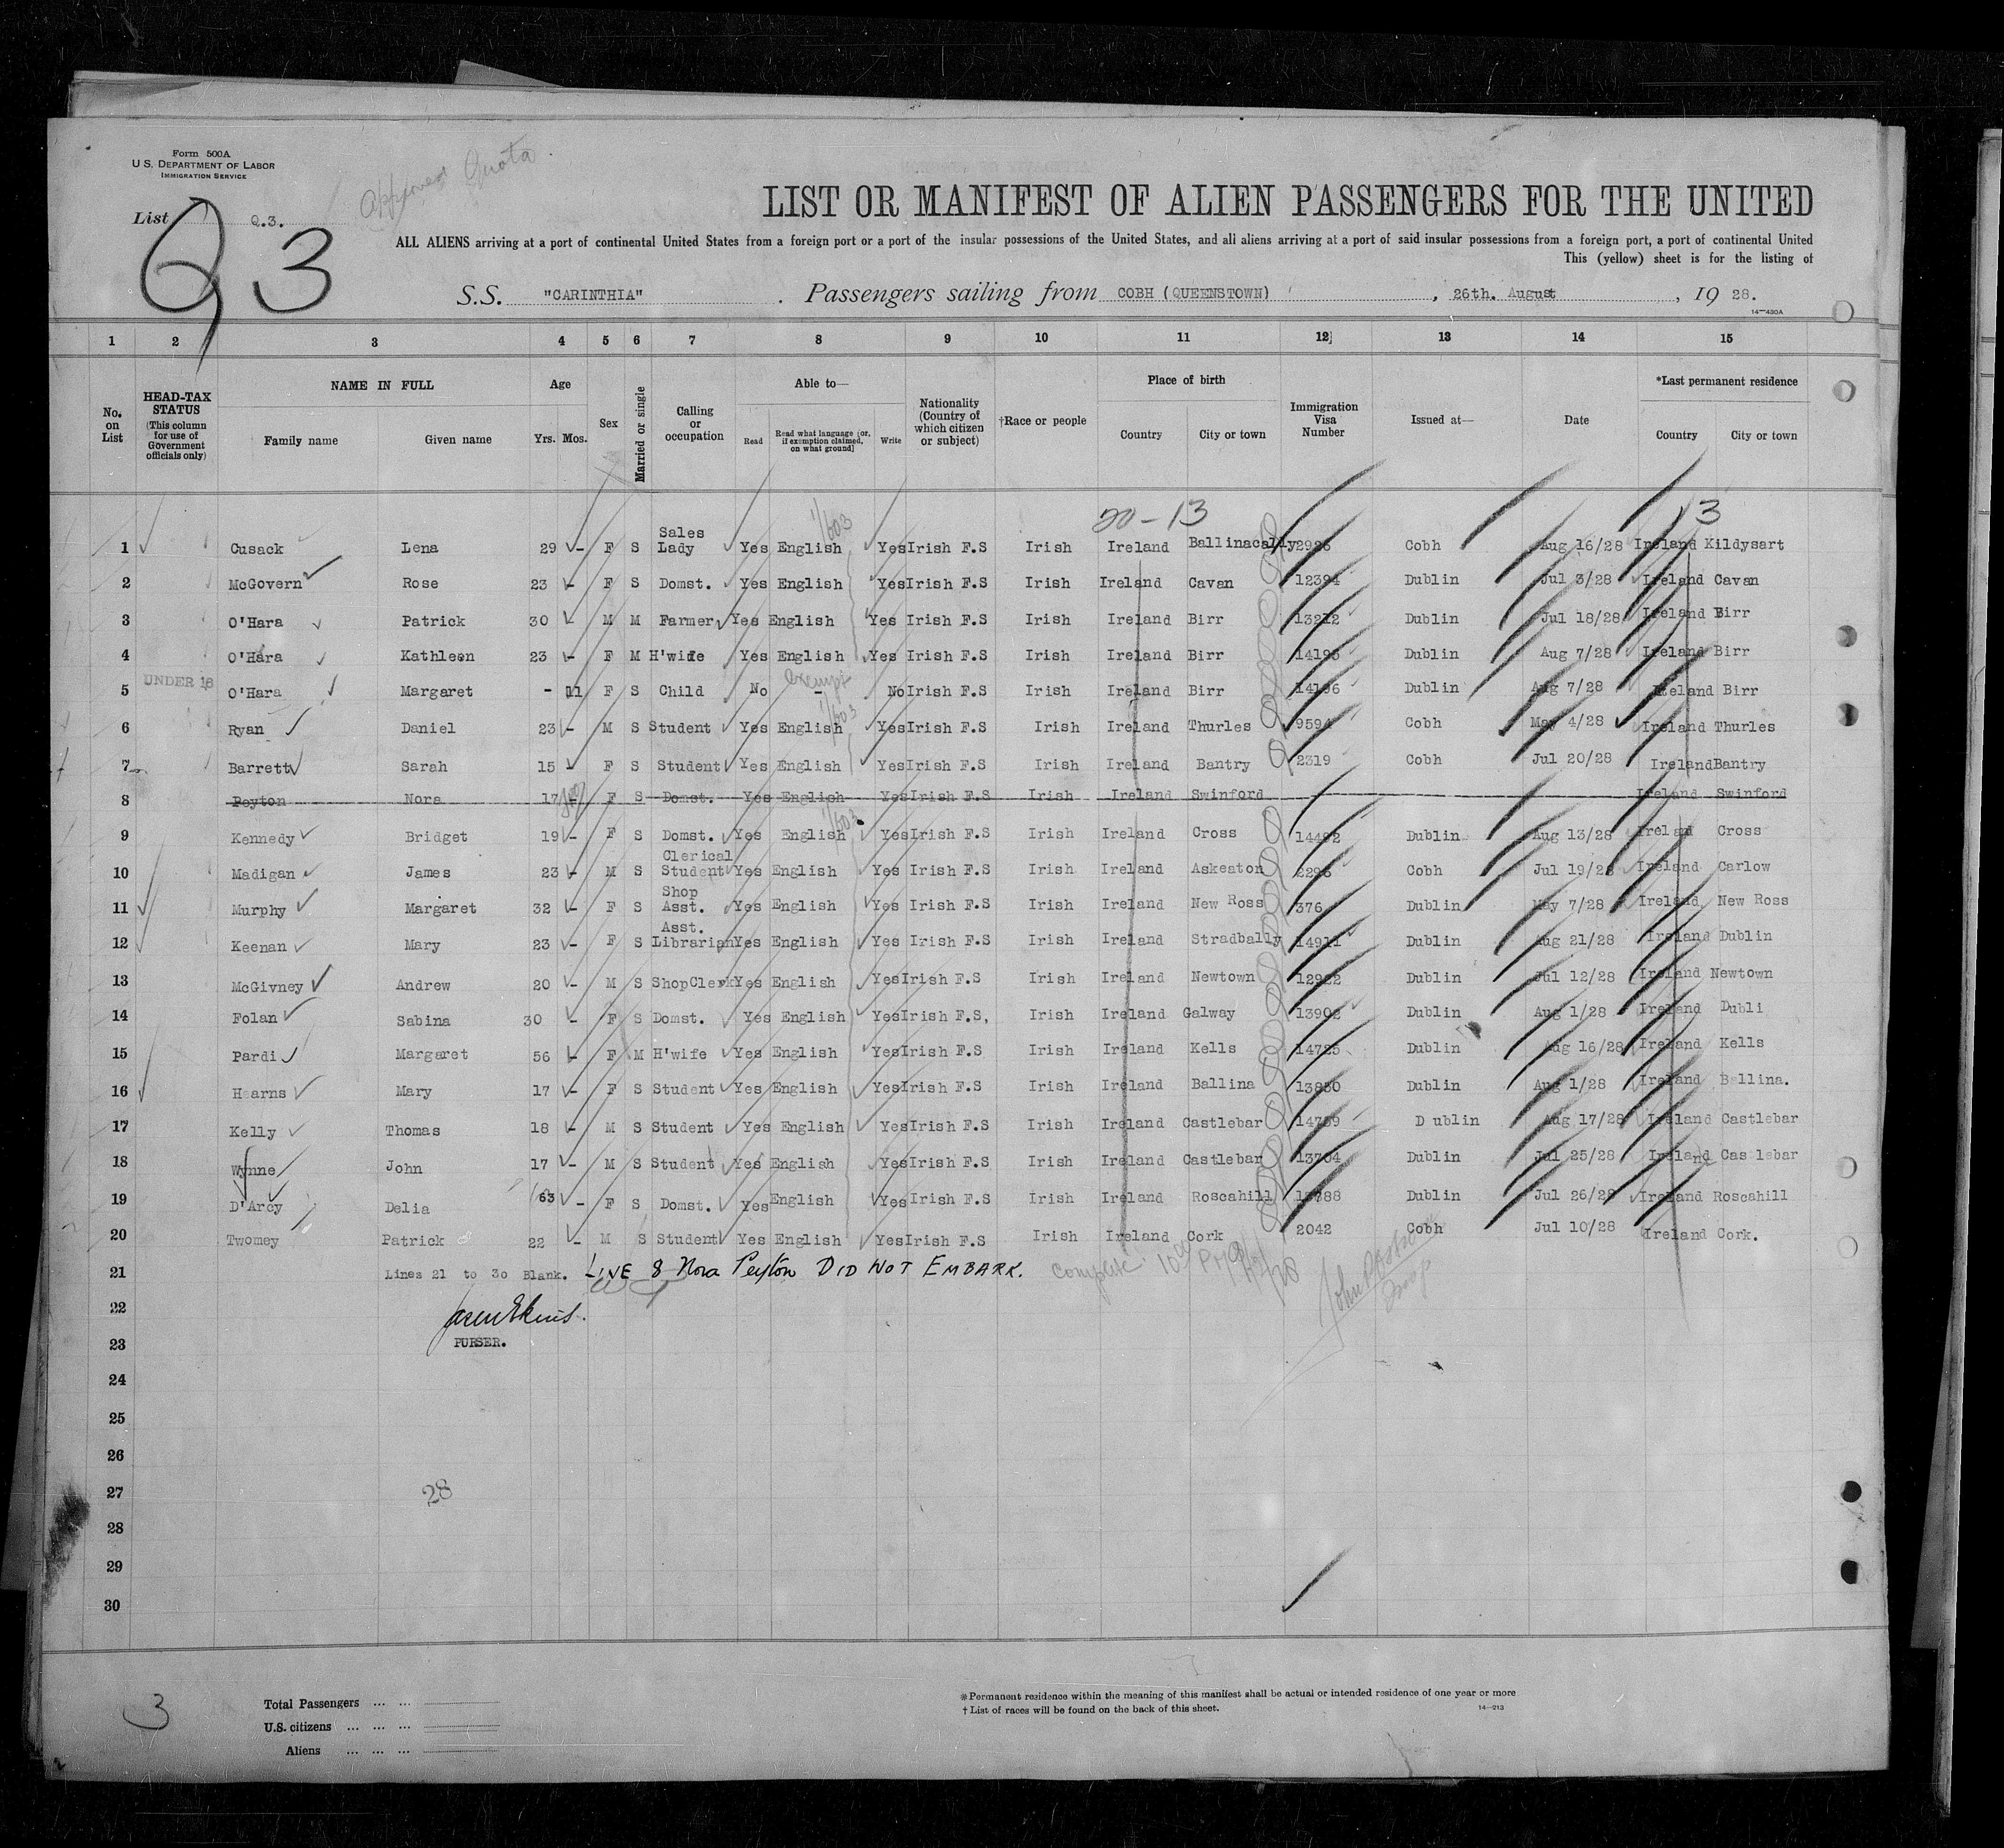 Form 500A
U.S. DEPARTMENT OF LABOR
IMMIGRATION SERVICE
Approved Quota
List Q.3.
Q3
LIST OR MANIFEST OF ALIEN PASSENGERS FOR THE UNITED
ALL ALIENS arriving at a port of continental United States from a foreign port or a port of the insular possessions of the United States, and all aliens arriving at a port of said insular possessions from a foreign port, a port of continental United
This (yellow) sheet is for the listing of
S.S. "CARINTHIA" . Passengers sailing from COBH (QUEENSTOWN) , 26th. August , 19 28.
14—430A
1 2 3 4 5 6 7 8 9 10 11 12 13 14 15
No. on List HEAD-TAX STATUS (This column for use of Government officials only) NAME IN FULL Family name Given name Age Yrs. Mos. Sex Married or single Calling or occupation Able to— Read Read what language [or, if exemption claimed, on what ground] Write Nationality (Country of which citizen or subject) †Race or people Place of birth Country City or town Immigration Visa Number Issued at— Date *Last permanent residence Country City or town
20-13 13
1 Cusack Lena 29 - F S Sales Lady Yes English Yes Irish F.S Irish Ireland Ballinacally 2926 Cobh Aug 16/28 Ireland Kildysart
2 McGovern Rose 23 - F S Domst. Yes English Yes Irish F.S Irish Ireland Cavan 12394 Dublin Jul 3/28 Ireland Cavan
3 O'Hara Patrick 30 M M Farmer Yes English Yes Irish F.S Irish Ireland Birr 13212 Dublin Jul 18/28 Ireland Birr
4 O'Hara Kathleen 23 - F M H'wife Yes English Yes Irish F.S Irish Ireland Birr 14195 Dublin Aug 7/28 Ireland Birr
UNDER 16
5 O'Hara Margaret - 11 F S Child No - exempt No Irish F.S Irish Ireland Birr 14196 Dublin Aug 7/28 Ireland Birr
6 Ryan Daniel 23 - M S Student Yes English Yes Irish F.S Irish Ireland Thurles 9594 Cobh May 4/28 Ireland Thurles
7 Barrett Sarah 15 - F S Student Yes English Yes Irish F.S Irish Ireland Bantry 2319 Cobh Jul 20/28 Ireland Bantry
8 Peyton Nora 17 - F S Domst. Yes English Yes Irish F.S Irish Ireland Swinford Ireland Swinford
9 Kennedy Bridget 19 - F S Domst. Yes English Yes Irish F.S Irish Ireland Cross 14492 Dublin Aug 13/28 Ireland Cross
10 Madigan James 23 - M S Clerical Student Yes English Yes Irish F.S Irish Ireland Askeaton 2296 Cobh Jul 19/28 Ireland Carlow
11 Murphy Margaret 32 - F S Shop Asst. Yes English Yes Irish F.S Irish Ireland New Ross 376 Dublin May 7/28 Ireland New Ross
12 Keenan Mary 23 - F S Asst. Librarian Yes English Yes Irish F.S Irish Ireland Stradbally 14911 Dublin Aug 21/28 Ireland Dublin
13 McGivney Andrew 20 - M S ShopClerk Yes English Yes Irish F.S Irish Ireland Newtown 12922 Dublin Jul 12/28 Ireland Newtown
14 Folan Sabina 30 - F S Domst. Yes English Yes Irish F.S, Irish Ireland Galway 13902 Dublin Aug 1/28 Ireland Dubli
15 Pardi Margaret 56 - F M H'wife Yes English Yes Irish F.S Irish Ireland Kells 14725 Dublin Aug 16/28 Ireland Kells
16 Hearns Mary 17 - F S Student Yes English Yes Irish F.S Irish Ireland Ballina 13880 Dublin Aug 1/28 Ireland Ballina.
17 Kelly Thomas 18 - M S Student Yes English Yes Irish F.S Irish Ireland Castlebar 14759 D ublin Aug 17/28 Ireland Castlebar
18 Wynne John 17 - M S Student Yes English Yes Irish F.S Irish Ireland Castlebar 13704 Dublin Jul 25/28 Ireland Cas lebar
19 D'Arcy Delia 63 - F S Domst. Yes English Yes Irish F.S Irish Ireland Roscahill Dublin Jul 26/28 Ireland Roscahill
20 Twomey Patrick 22 - M S Student Yes English Yes Irish F.S Irish Ireland Cork 2042 Cobh Jul 10/28 Ireland Cork.
21 Lines 21 to 30 Blank. LINE 8 Nora Peyton DID NOT EMBARK. Complete
22
23 PURSER.
24
25
26
27 28
28
29
30
3
Total Passengers
U.S. citizens
Aliens
*Permanent residence within the meaning of this manifest shall be actual or intended residence of one year or more
† List of races will be found on the back of this sheet.
14—213